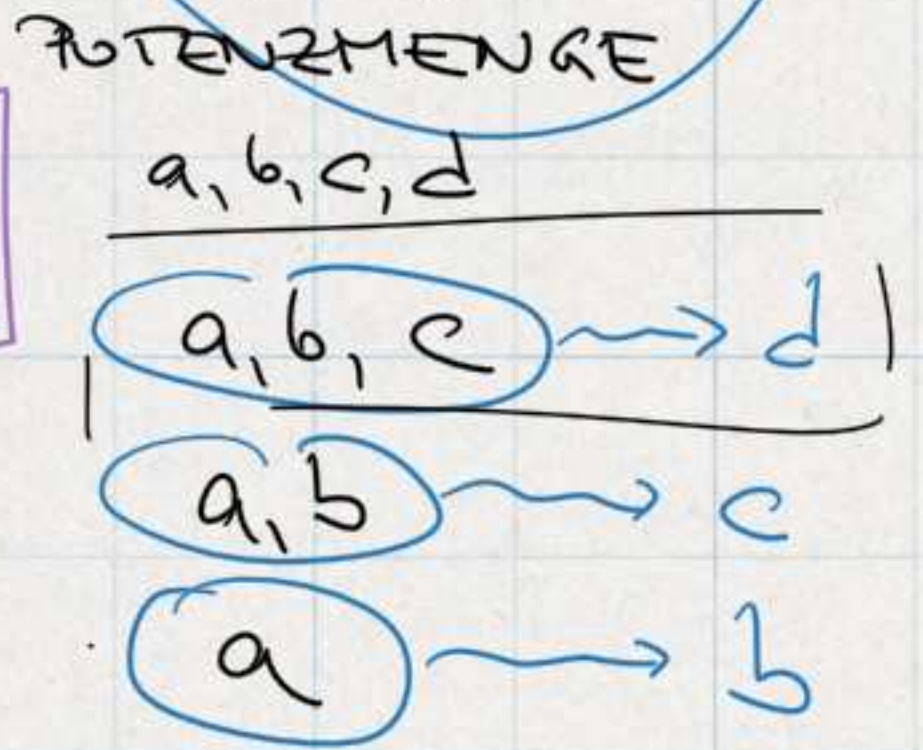 POTENZMENGE
a, b, c, d
a, b, c → d
a, b → c
a → b